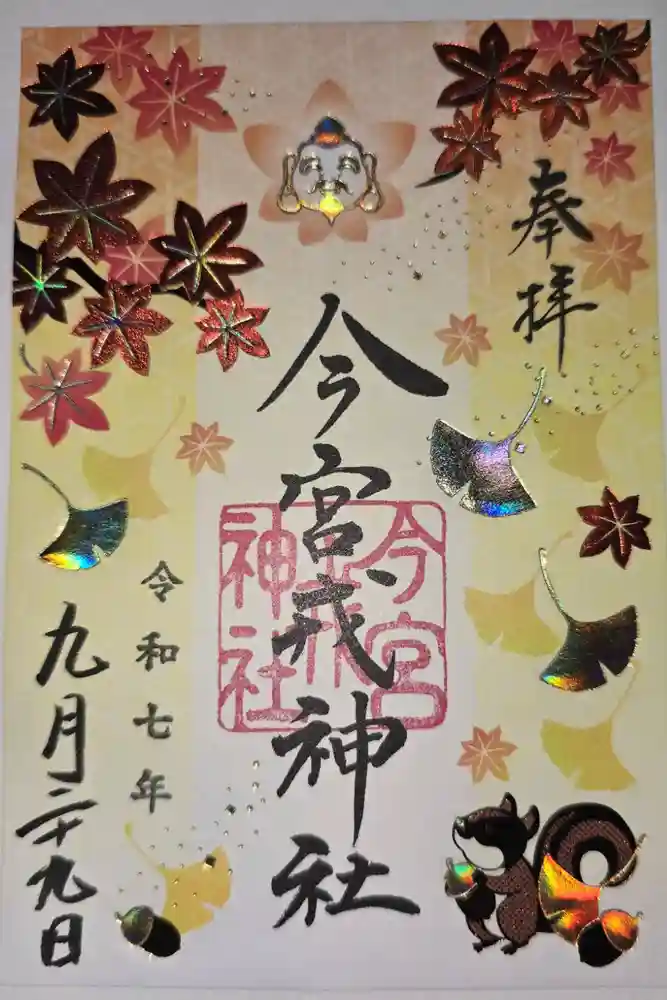 奉拝
今宮戎神社
今宮
戎
神社
令和七年
九月二十九日